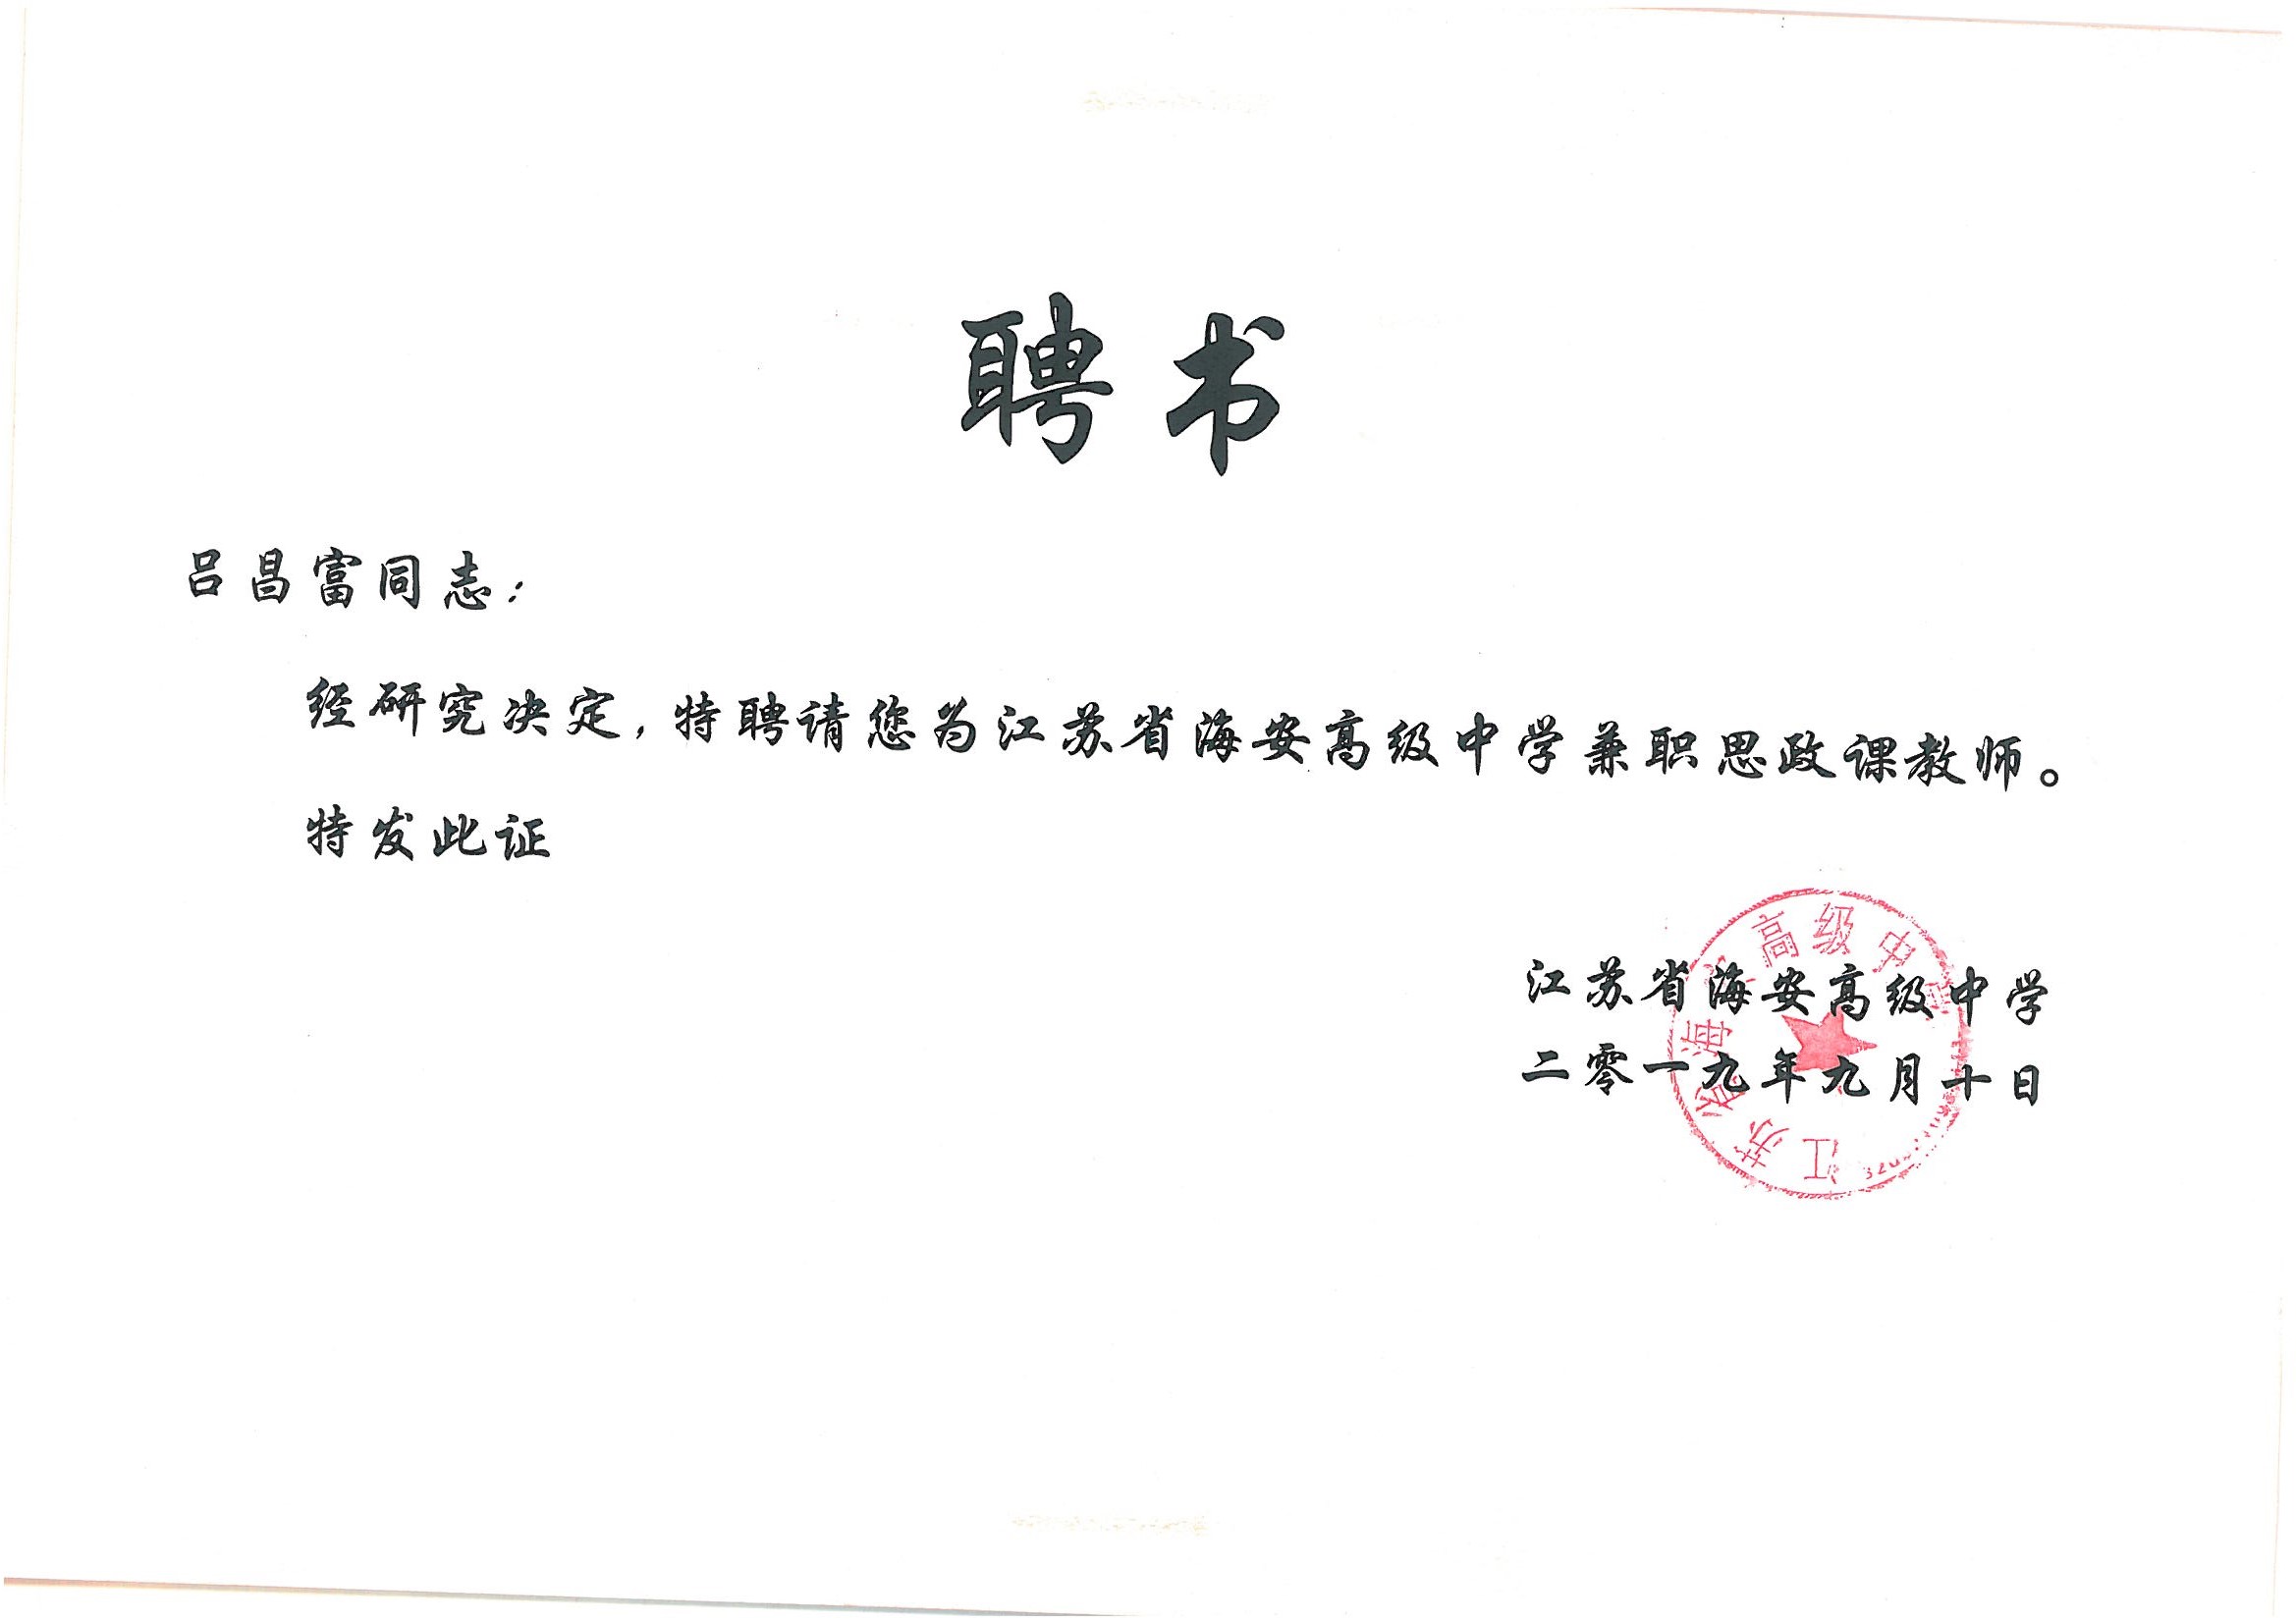 聘书
吕昌富同志：
经研究决定，特聘请您为江苏省海安高级中学兼职思政课教师。
特发此证
江苏省海安高级中学
二零一九年九月十日